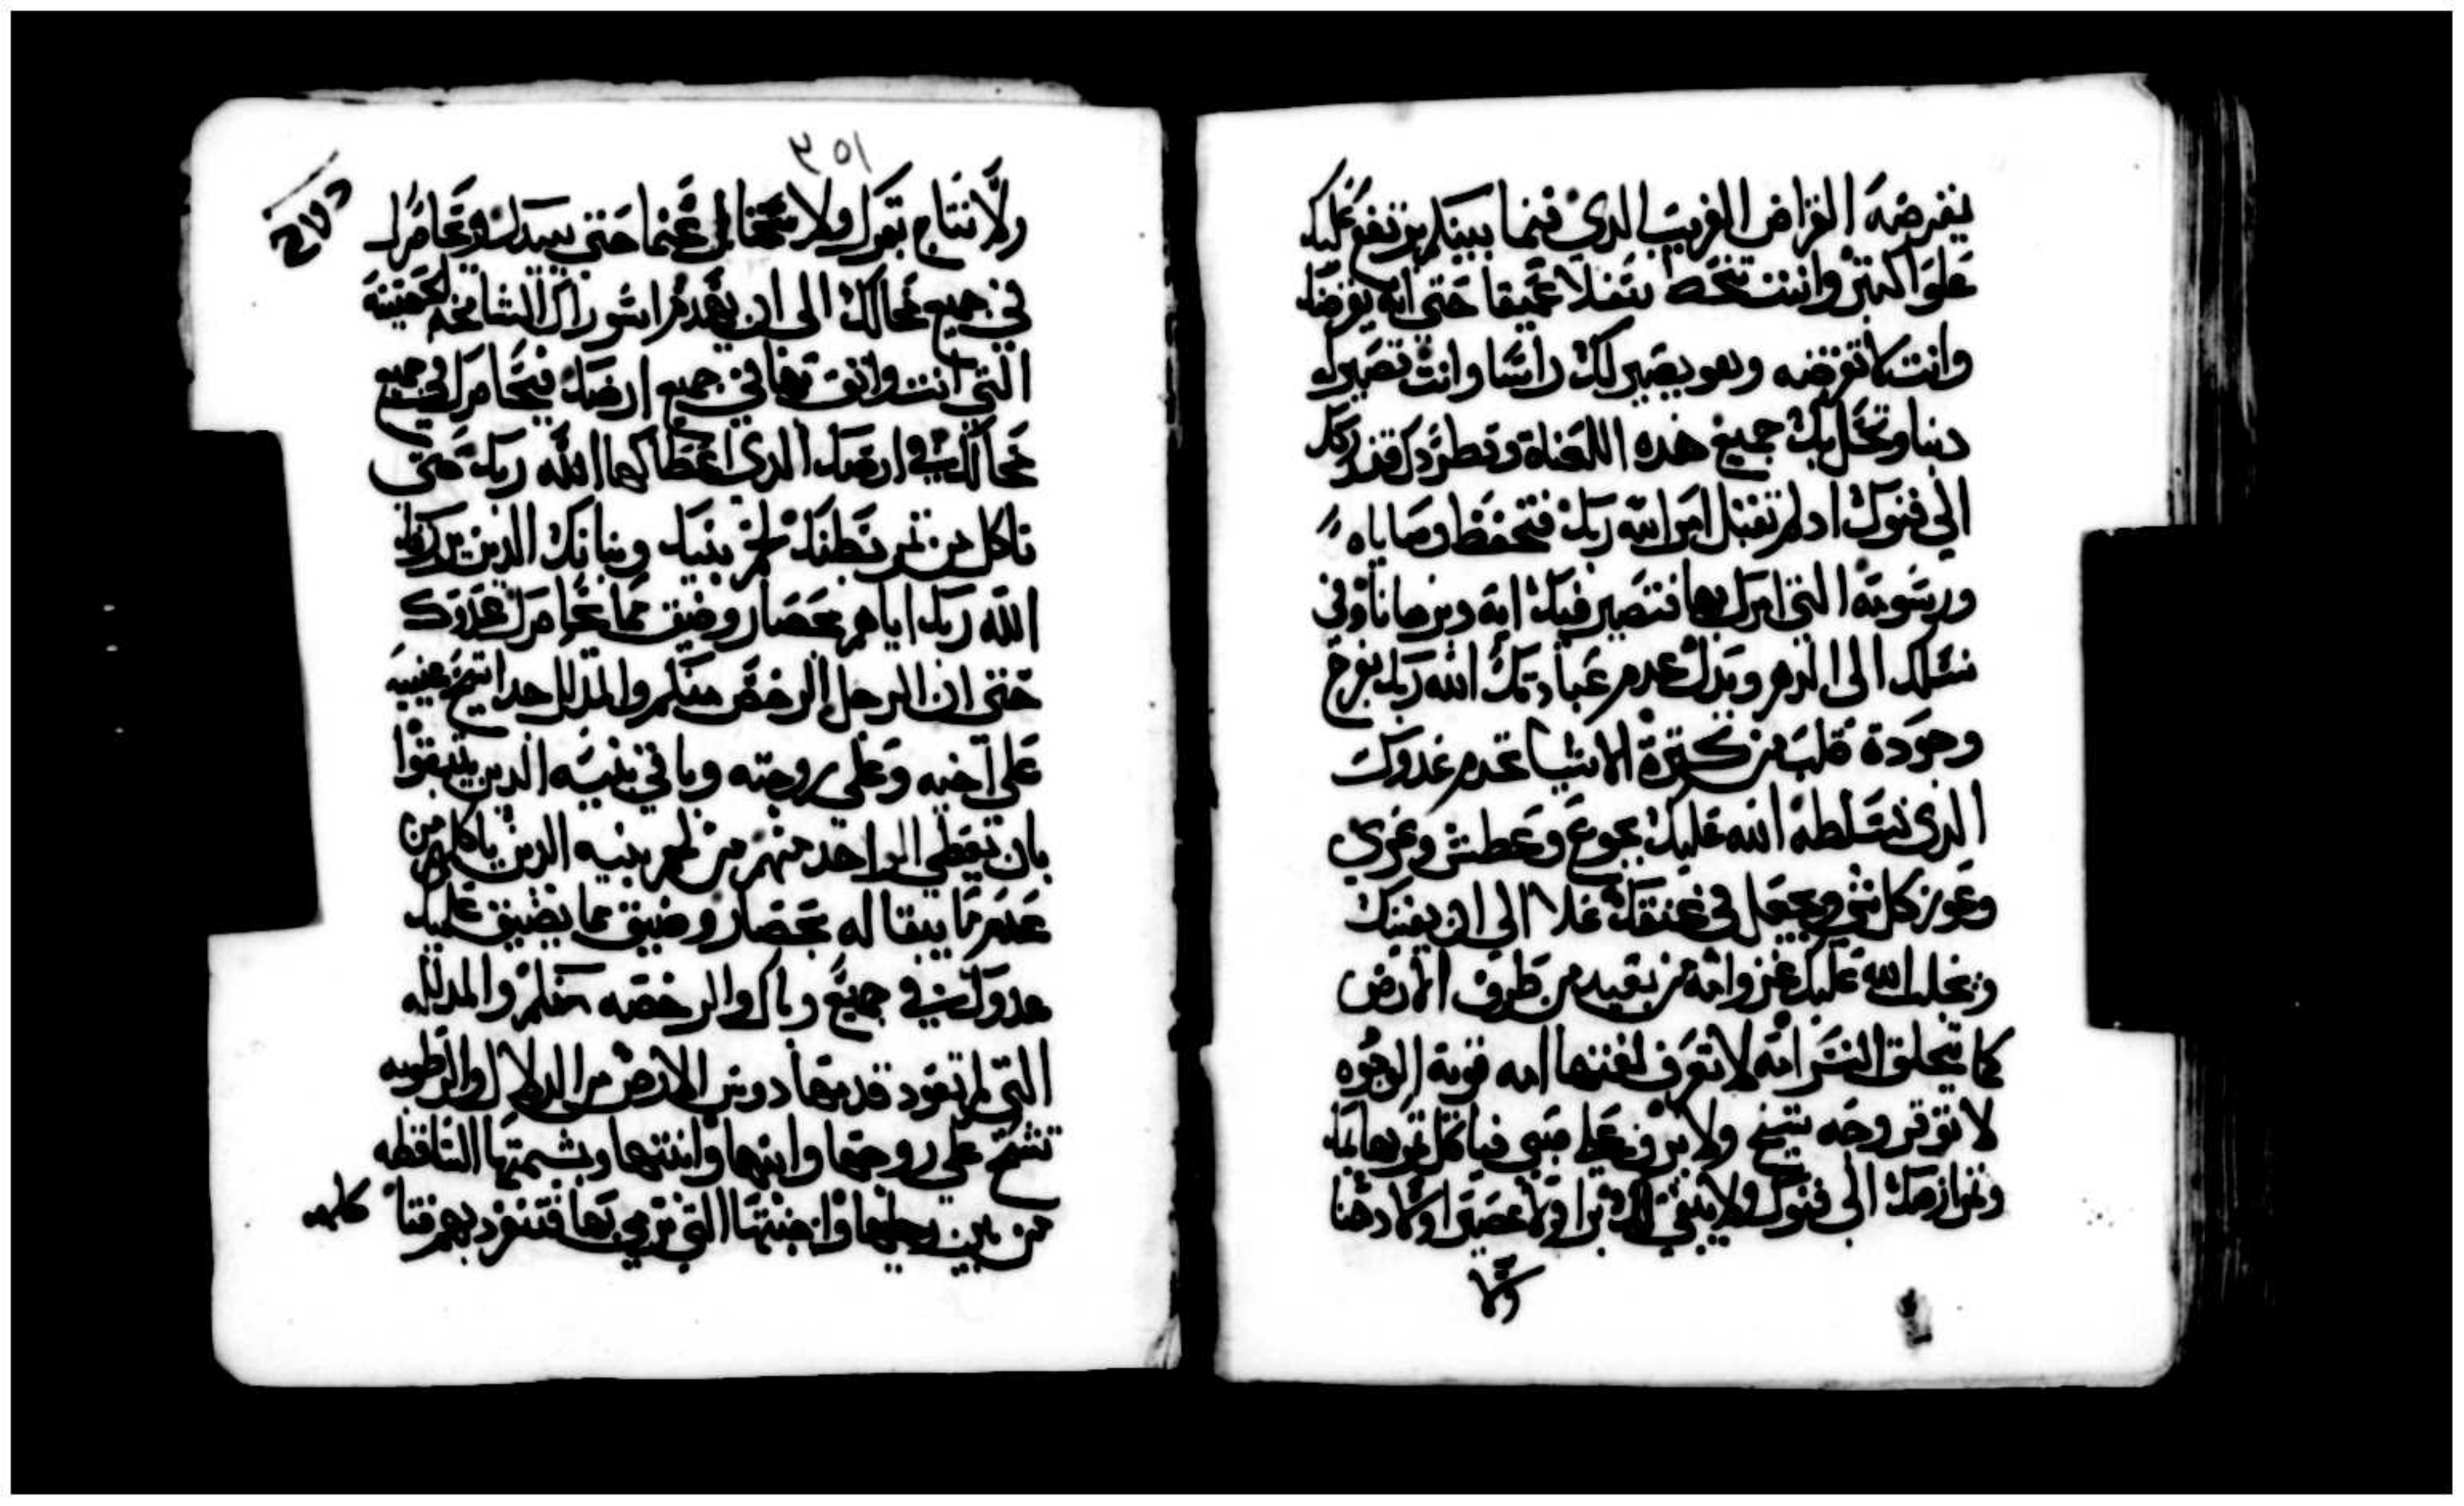 يفرضه القراض الغريب الدي فيما بينكم يرتفع عليك
علوا كبير وانت تنحط سفلا عميقا حتى انه يقرضك
وانت لا تقرضه وهو يصير لك راسا وانت تصير له
دنبا وتحل بك جميع هذه اللعناة وتطردك وتدركك
الي فنوك اد لم تقبل امر الله ربك فتحفظ وصاياه
ورسومه التي امرك بها فتصير فيك ايه وبرهانا وفي
نسلك الى الدهر وبدل عدم عبادتك الله ربك بفرح
وجودة قلب من كثرة الاشيا تخدم عدوك
الدي يسلطه الله عليك بجوع وعطش وعري
وعوز كل شي ويجعل في عنقك غلا الى ان يفنيك
ويجلب الله عليك امة من بعيد من طرف الارض
كما يحلق النسر امه لا تعرف لغتها امه قوية الوجوه
لا توقر وجه شيخ ولا تروف على صبي فياكل تمر بهايمك
وتمر ارضك الى فنوك ولا يبقي لك برا ولا عصيرا ولا دهنا
ولا
٣٥١
ولا نتاج بقرك ولا غنما حتى يبيدك ويحاصرك
في جميع محالك الى ان يهدم اسوارك الشامخه الحصينه
التي انت واثق بها في جميع ارضك فيحاصرك في جميع
محالك في ارضك الدي اعطاكها الله ربك حتى
تاكل من تمر بطنك لحم بنيك وبناتك الدين يرزقك
الله ربك اياهم بحصار وضيق مما يحاصرك عدوك
حتى ان الرجل الرخص منكم والمدلل جدا تشح عينيه
على اخيه وعلى زوجته وباقي بنيه الدين يتبقوا
بان يعطي الواحد منهم من لحم بنيه الدين ياكلهم من
عدم ما يبقا له بحصار وضيق مما يضيق عليك
عدوك في جميع والرخصه منكم والمدلله
التي لم تعود قدمها دوس الارض من الدلال والرطوبه
تشح على زوجها وابنها وابنتها وبشيمتها الساقطه
من بين رجليها التي ترمي بها فتنفرد بهم فتا كلهم